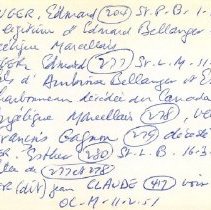 NGER, Edmond (204) St. P. B. 1-
legitime d'Edmond Bellanger
Angelique Marcellais
GER Edmond (277) St. L. M. 11-
fils d'Ambroise Bellanger et E
Charbonneau décédée du Canada
Angélique Marcellais (278), ve
François Gagnon (279) décédé
ER. Esther (280) St. L. B. 16-3
fille de 277 et 278
ER (dit) Jean CLAUDE (417) voir
OL-M-11-2-51